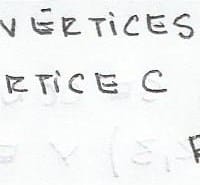 VÉRTICES
RTICE C